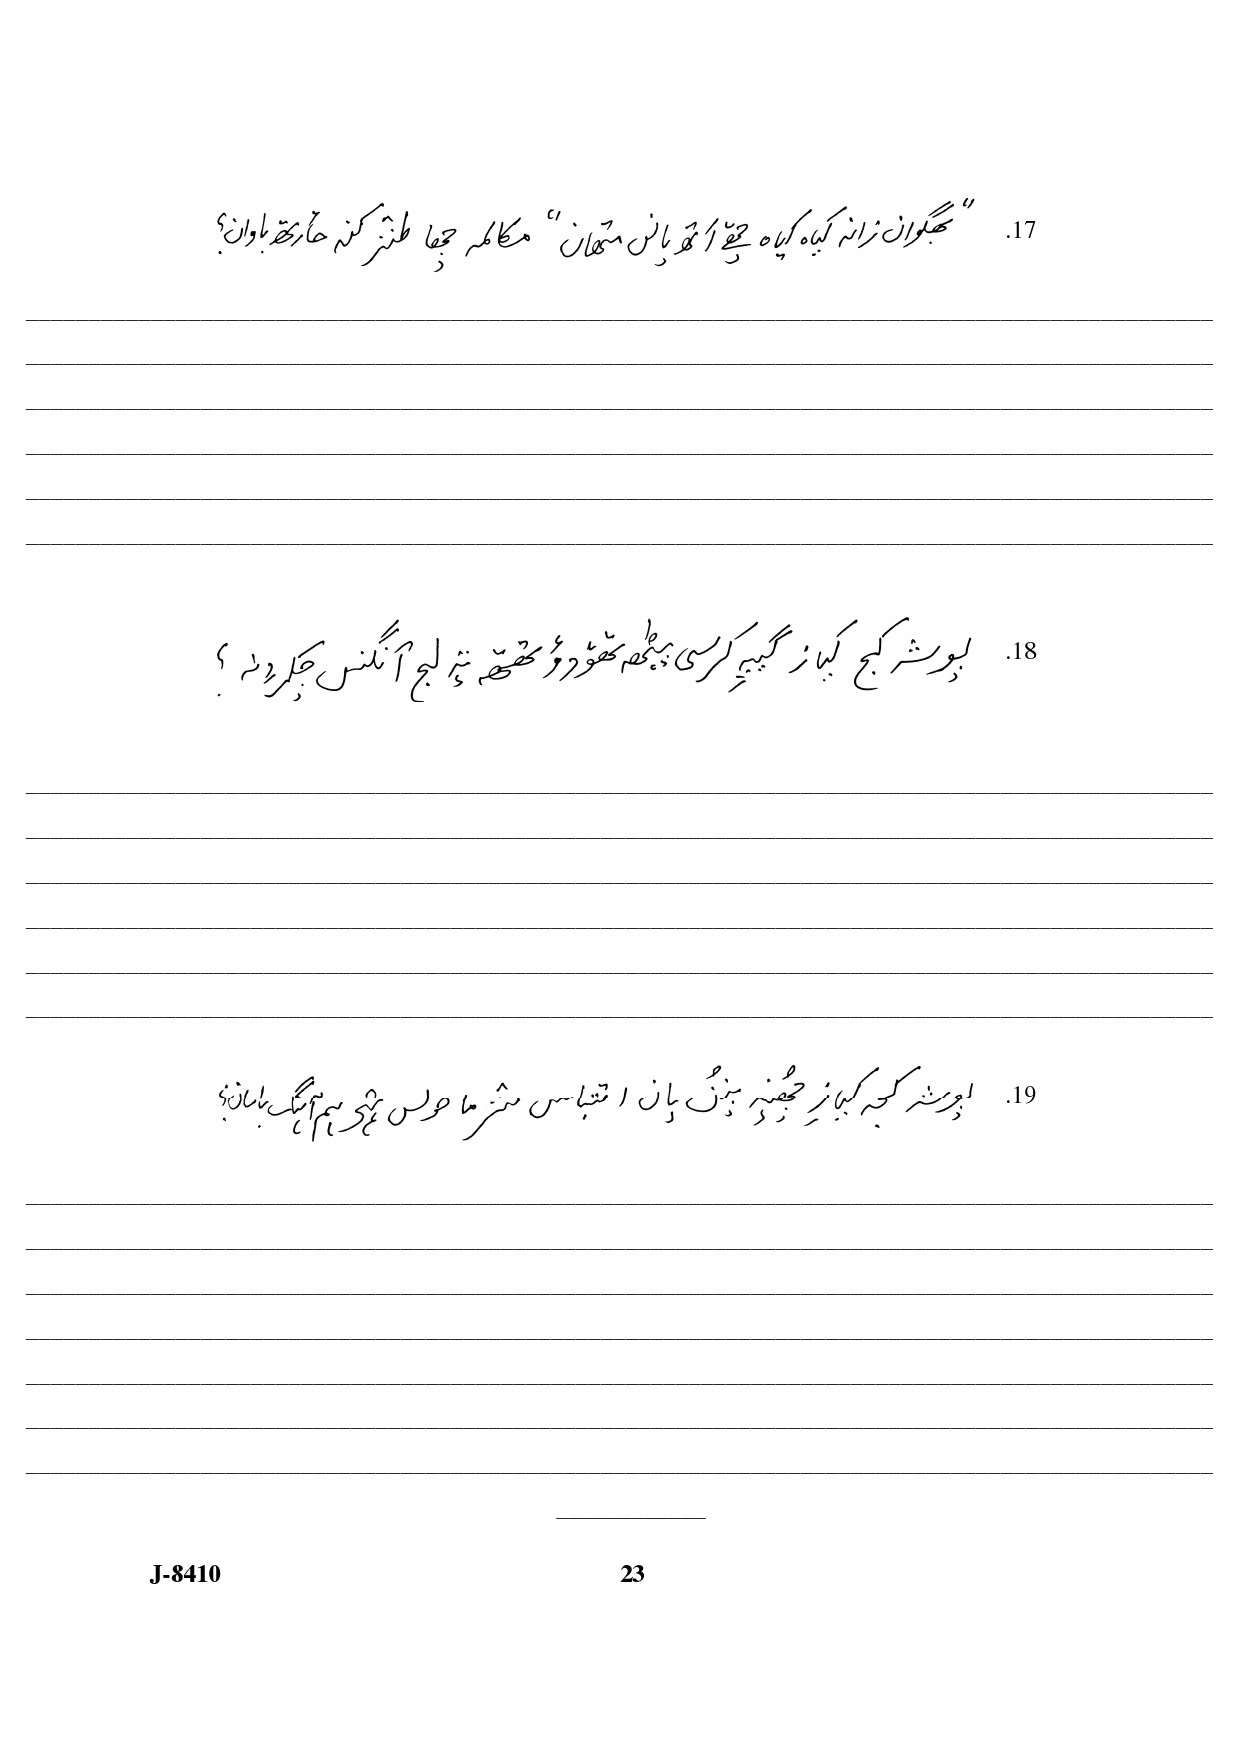 17. "بھگوان زانہ کیاہ کیاہ چھے أتھ پانس متھان" مکالمہ چھا طنز کنہ حأرتھ باوان؟
18. پوشہ کُج کیاز گییہِ کرسی پیٹھہ تھۆد وۄتھتھ تہٕ لج آنگنس چکر دِنہ ؟
19. پوشہ کجہ کیازِ چھُنہٕ پنُن پان اقتباس منز ماحولس ہم آہنگ باسان؟
J-8410
23